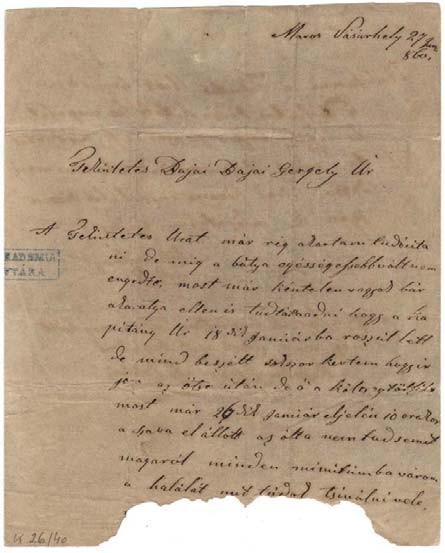 Maros Vásárhely 27 Jan
860.
Tekintetes Dajai Dajai Gergely Úr
A Tekintetes Urat már rég akartam tudósita
ni de mig a bátya egésségessebb vólt nem
engedte, most már kéntelen vagyok bár
akaratja ellen is tudtára adni hogy a Ka
pitány Úr 18dik Januárba roszul lett
de mind beszélt sokszor kértem hogy ir
jon az ötse után de ő a
most már 26dik Január éjelén 10 orakor
a szava el állott az ólta nem tud semmit
magaról minden minutumba várom
a halálát mit tudok tsinálni vele
KADÉMIA
YTÁRA
K 26/40